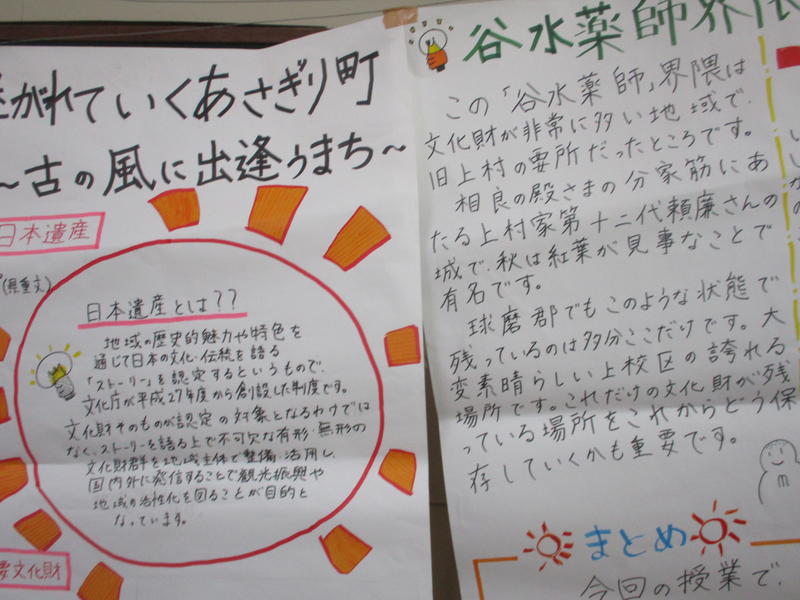 がれていくあさぎり町
~古の風に出逢うまち~
日本遺産
(県重文)
日本遺産とは??
地域の歴史的魅力や特色を
通じて日本の文化・伝統を語る
「ストーリー」を認定するというもので、
文化庁が平成27年度から創設した制度です。
文化財そのものが認定の対象となるわけでは
なく、ストーリーを語る上で不可欠な有形・無形の
文化財群を地域主体で整備・活用し、
国内外に発信することで観光振興や
地域の活性化を図ることが目的と
なっています。
文化財
谷水薬師界隈
この「谷水薬師」界隈は
文化財が非常に多い地域で、
旧上村の要所だったところです。
相良の殿さまの分家筋にあ
たる上村家第十二代頼廉さんの
城で、秋は紅葉が見事なことで
有名です。
球磨郡でもこのような状態で
残っているのは多分ここだけです。大
変素晴らしい上校区の誇れる
場所です。これだけの文化財が残
っている場所をこれからどう保
存していくかも重要です。
まとめ
今回の授業で、